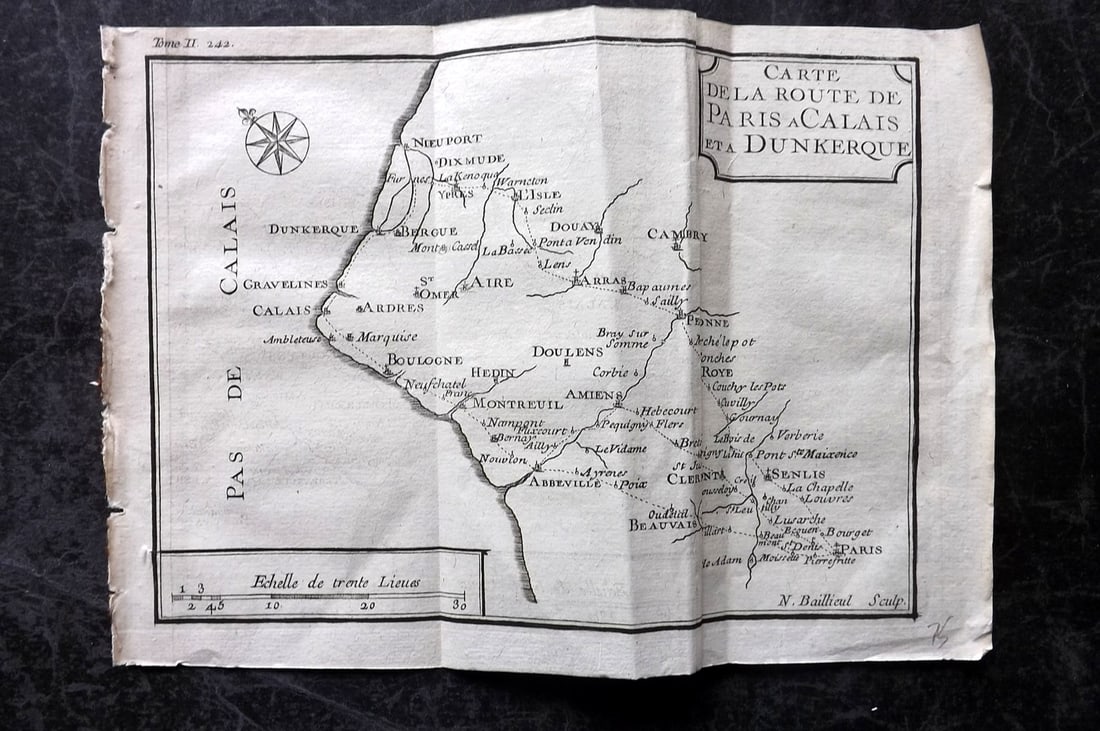 Tome II. 242.
CARTE
DE LA ROUTE DE
PARIS A CALAIS
ET A DUNKERQUE
PAS DE CALAIS
NIEUPORT
DIXMUDE
Furnes
La Kenoque
Warneton
YPRES
L'ISLE
Seclin
DUNKERQUE
BERGUE
DOUAY
CAMBRY
Mont Cassel
La Bassee
Pont a Vendin
Lens
GRAVELINES
ST
OMER
AIRE
ARRAS
Bapaumes
Sailly
CALAIS
ARDRES
PERONNE
Ambleteuse
Marquise
Bray sur
Somme
DOULENS
BOULOGNE
HEDIN
Corbie
ROYE
Neufchatel
Couchy les Pots
Cuvilly
MONTREUIL
AMIENS
Hebecourt
Gournay
Nampont
Pequigny
Flers
Bernay
Verberie
Ailly
Le Vidame
Pont Ste Maixence
Nouvion
CLERMT
SENLIS
ABBEVILLE
Ayrenes
Poix
La Chapelle
Louvres
BEAUVAIS
Lusarche
Ecouen
Bourget
St Denis
PARIS
Moiselle
Pierrefitte
Echelle de trente Lieues
1 3
2 4 5 10 20 30
N. Baillieul Sculp.